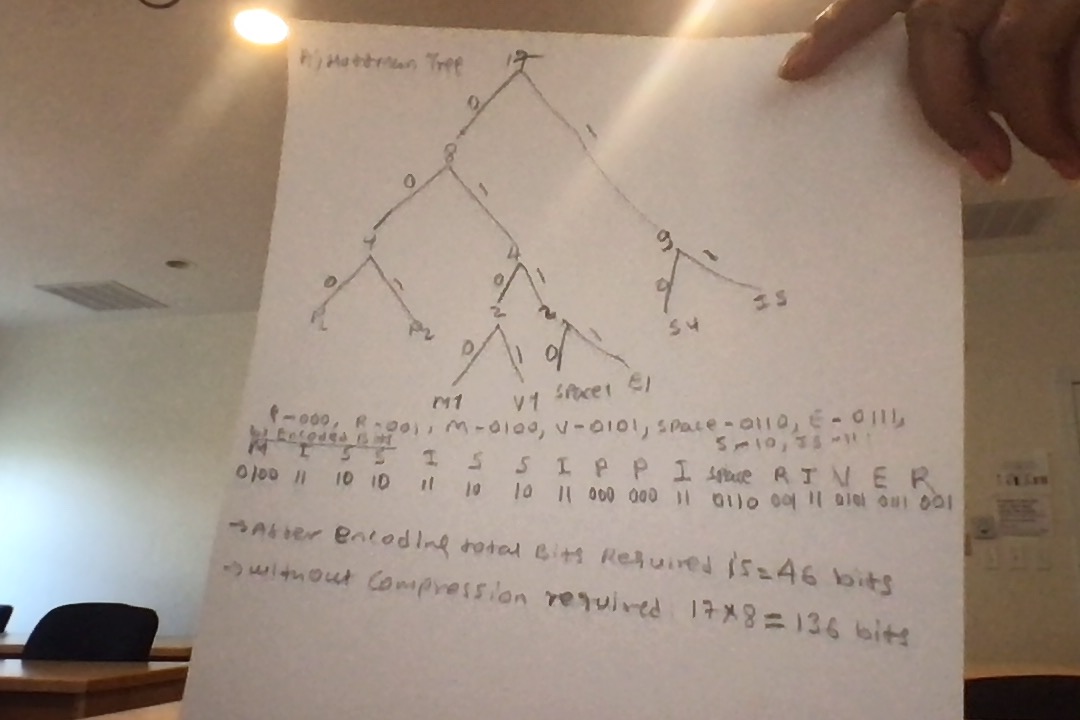 Huffman Tree
17
0 1
8
0 1
9
4 4
0 1 0 1 0 1
2 2
S4 I5
R2
0 1 0 1
M1 V1 Space1 E1
P-000, R-001, M-0100, V-0101, space-0110, E-0111,
S-10, I5-11
b) Encoded Bits
M I S S I S S I P P I space R I V E R
0100 11 10 10 11 10 10 11 000 000 11 0110 001 11 0101 0111 001
→After encoding total Bits Required is=46 bits
→without compression required 17x8=136 bits